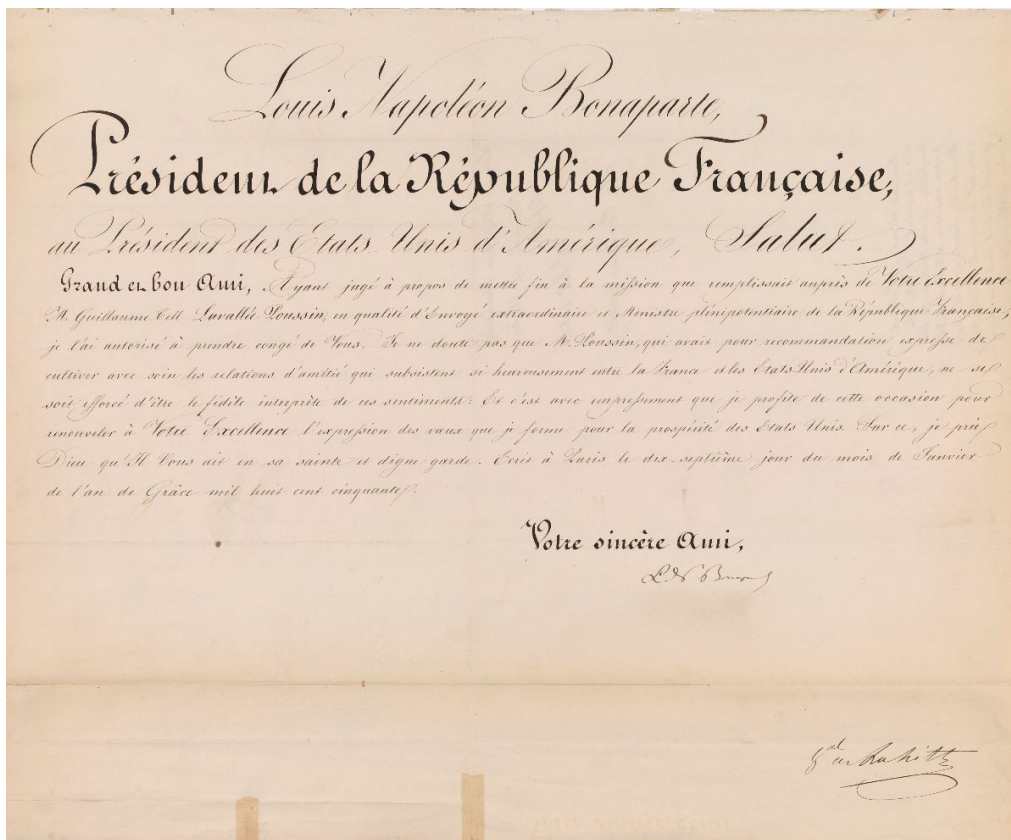 Louis Napoléon Bonaparte,
Président de la République Française,
au Président des Etats Unis d'Amérique, Salut.
Grand et bon Ami, Ayant jugé à propos de mettre fin à la mission que remplissait auprès de Votre Excellence
M. Guillaume Tell Lavallée Poussin, en qualité d'Envoyé extraordinaire et Ministre plénipotentiaire de la République Française,
je l'ai autorisé à prendre congé de Vous. Je ne doute pas que M. Poussin, qui avait pour recommandation expresse de
cultiver avec soin les relations d'amitié qui subsistent si heureusement entre la France et les Etats Unis d'Amérique, ne se
soit efforcé d'être le fidèle interprète de ces sentiments. Et c'est avec empressement que je profite de cette occasion pour
renouveler à Votre Excellence l'expression des vœux que je forme pour la prospérité des Etats Unis. Sur ce, je prie
Dieu qu'Il Vous ait en sa sainte et digne garde. Ecrit à Paris le dix-septième jour du mois de Janvier
de l'an de Grâce mil huit cent cinquante.
Votre sincère Ami,
L. N. Bonaparte
Gal de Lahitte